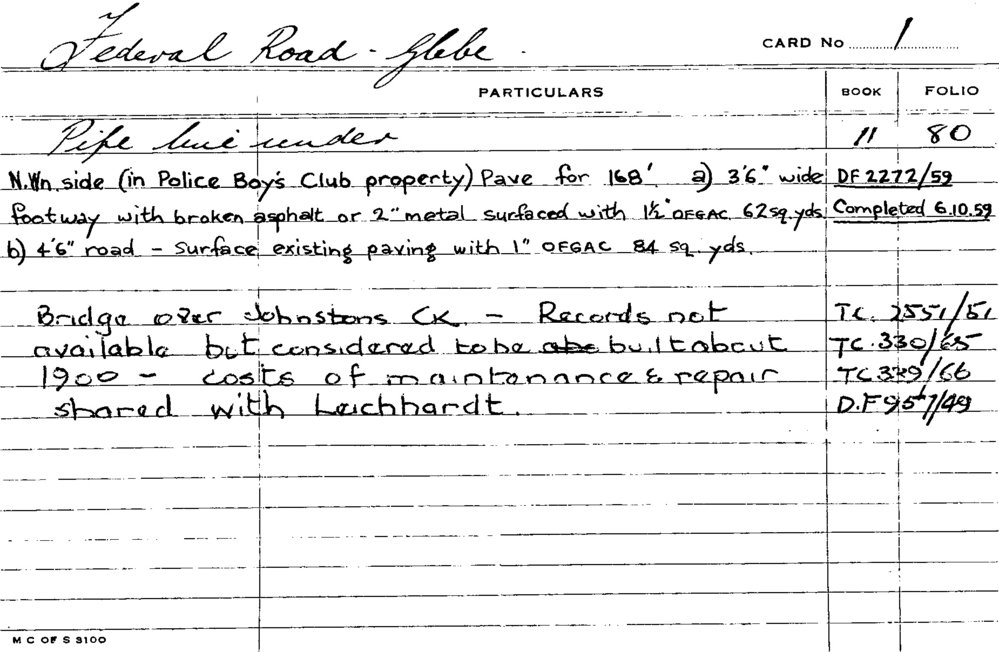 Federal Road - Glebe.
CARD No 1
PARTICULARS BOOK FOLIO
Pipe line under 11 80
N.Wn. side (in Police Boy's Club property) Pave for 168' a) 3'6" wide DF 2272/59
footway with broken asphalt or 2" metal surfaced with 1½" OFGAC 62 sq. yds. Completed 6.10.59
b) 4'6" road - surface existing paving with 1" OFGAC 84 sq. yds.
Bridge over Johnstons CK - Records not TC. 2551/51
available but considered to be built about TC.330/65
1900 - costs of maintenance & repair TC 329/66
shared with Leichhardt. D.F 957/49
M C OF S 3100